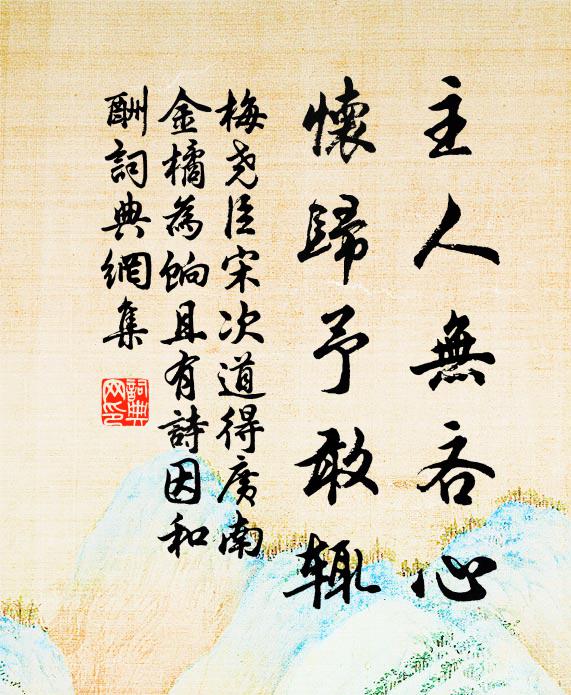 主人無吝心
懷歸予敢輙
梅堯臣宋次道得廣南
金橘為餉且有詩因和
酬詞典網集
詞典
网印